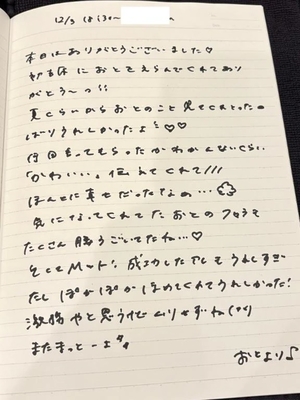 12/3 18:30~
本日はありがとうございました♡
お事休におとをえらんでくれてあり
がとう〜っ!!
夏くらいからおとのこと見てくれとったの
ばりうれしかったよ♡♡
何回もってもらったかわかんないくらい
「かわいい」伝えてくれて///
ほんとに幸せだったなぁ…
気になってくれてたおとのフロうモ
たくさん腰うごいてたね…♡
そしてMット! 成功したしてうれしすぎ
たし ぽかぽかほめてくれてうれしかった!
激務やと思うけどムリせずね(°°)
またまっとーよ
おとより♪